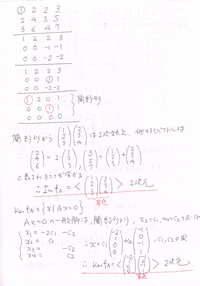 ① 2 2 3
2 4 3 5
3 6 4 7
1 2 2 3
0 0 -1 -1
0 0 -2 -2
1 2 2 3
0 0 ① 1
0 0 -2 -2
① 2 0 1
0 0 ① 1
0 0 0 0
簡約形
簡約形から (1 2 3) (2 3 4) は1次独立、他の
(2 4 6) = 2 (1 2 3), (3 5 7) = (1 2 3) + (2 3 4)
∴ Im fA = < (1 2 3) (2 3 4) > 2次元
基底
Ker fA = {x | Ax = 0}
Ax = 0 の一般解は、簡約形より、x2 = c1, x4 = c2
x1 = -2c1 - c2
x2 = c1
x3 = -c2
x4 = c2
∴ x = c1 (-2 1 0 0) + c2 (-1 0 -1 1), c1, c2
∴ Ker fA = < (-2 1 0 0) (-1 0 -1 1) > 2次元
基底